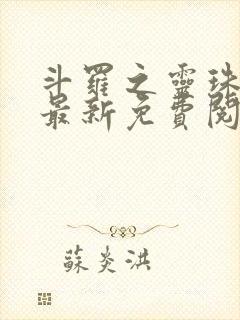 斗羅之靈珠
最新免費閱
蘇炎洪